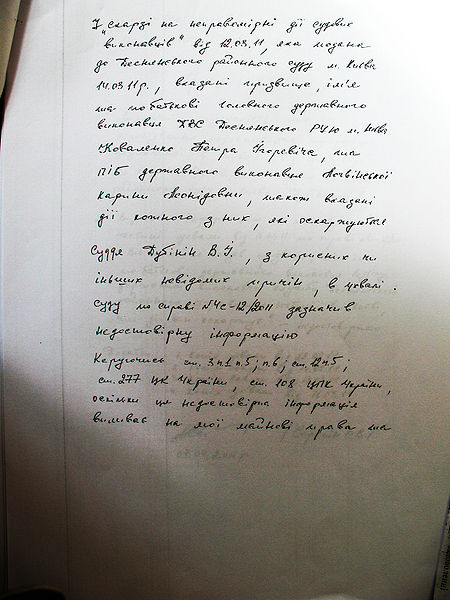 У скарзі на неправомірні дії судових
виконавців" від 12.03.11, яка подана
до Деснянського районного суду м. Києва
14.03.11р., вказані прізвище, ім'я
та по батькові головного державного
виконавця ДВС Деснянського РУЮ м. Києва
Коваленко Петра Ігоревіча, та
ПІБ державного виконавця
Карини Леонідовни, також вказані
дії кожного з них, які оскаржуються
Суддя Дубінін В.І., з корисних чи
інших невідомих причин, в ухвалі
суду по справі №4с-12/2011 зазначив
недостовірну інформацію
Керуючись ст. 3 п.1 п.5; п.6; ст. 12 п.5;
ст. 277 ЦК України, ст. 108 ЦПК України,
оскільки ця недостовірна інформація
впливає на мої майнові права та